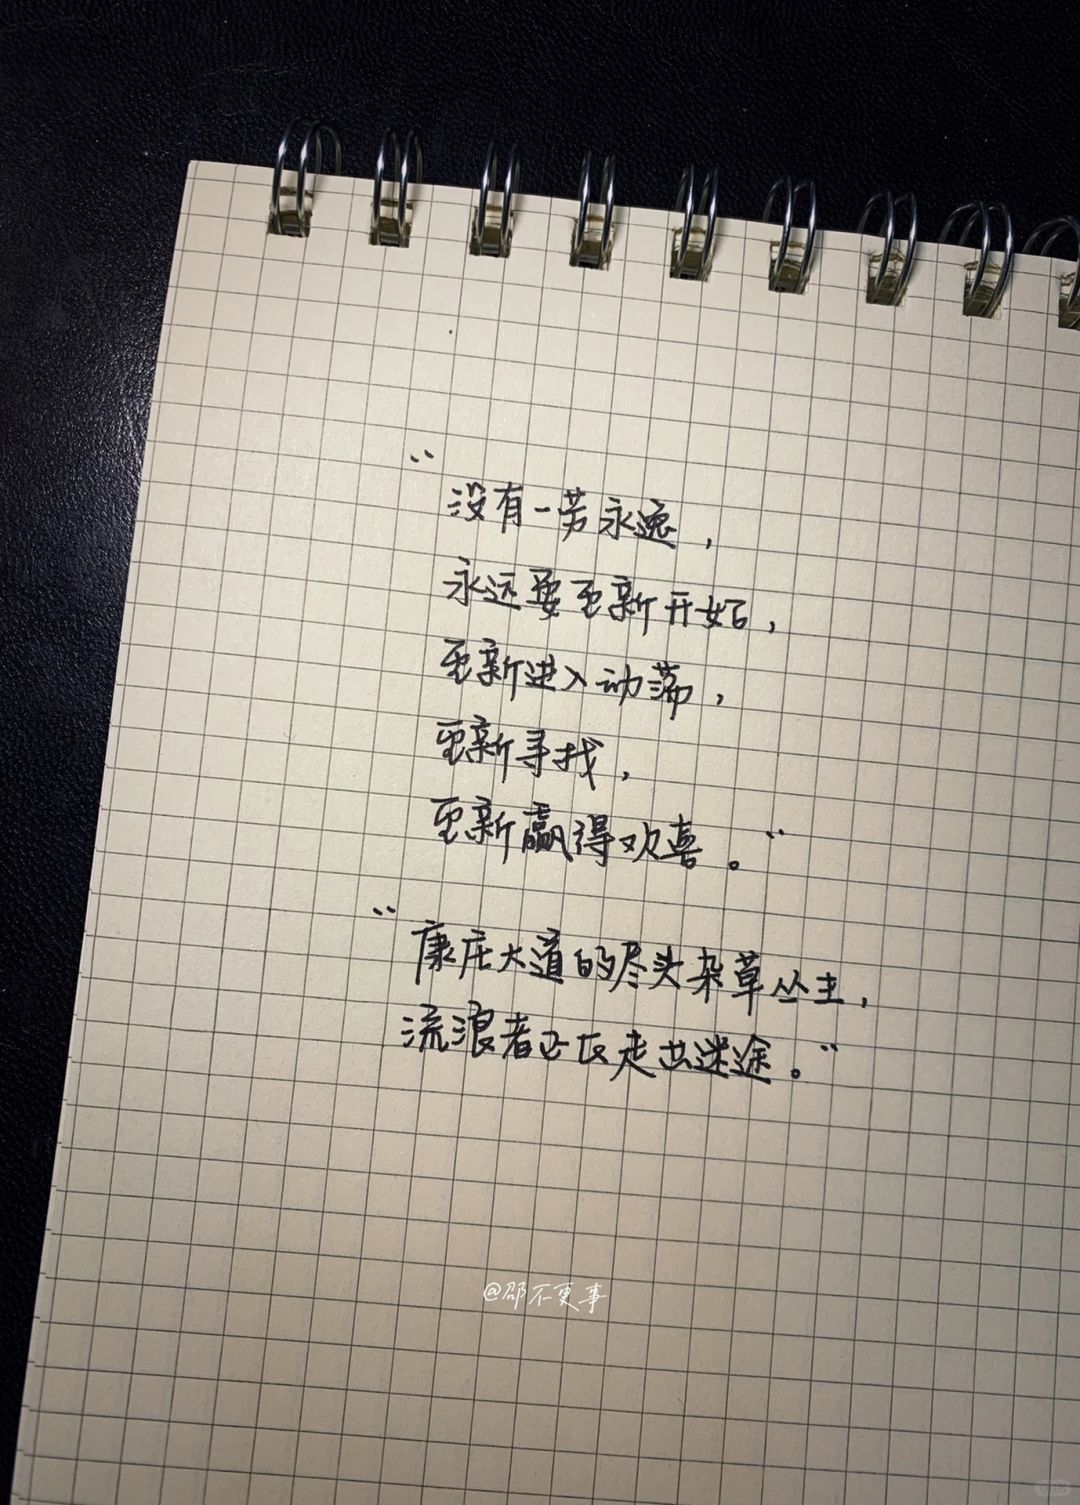 “没有一劳永逸，
永远要重新开始，
重新进入动荡，
重新寻找，
重新赢得欢喜。”
“康庄大道的尽头杂草丛生，
流浪者正在走出迷途。”
@邵不更事